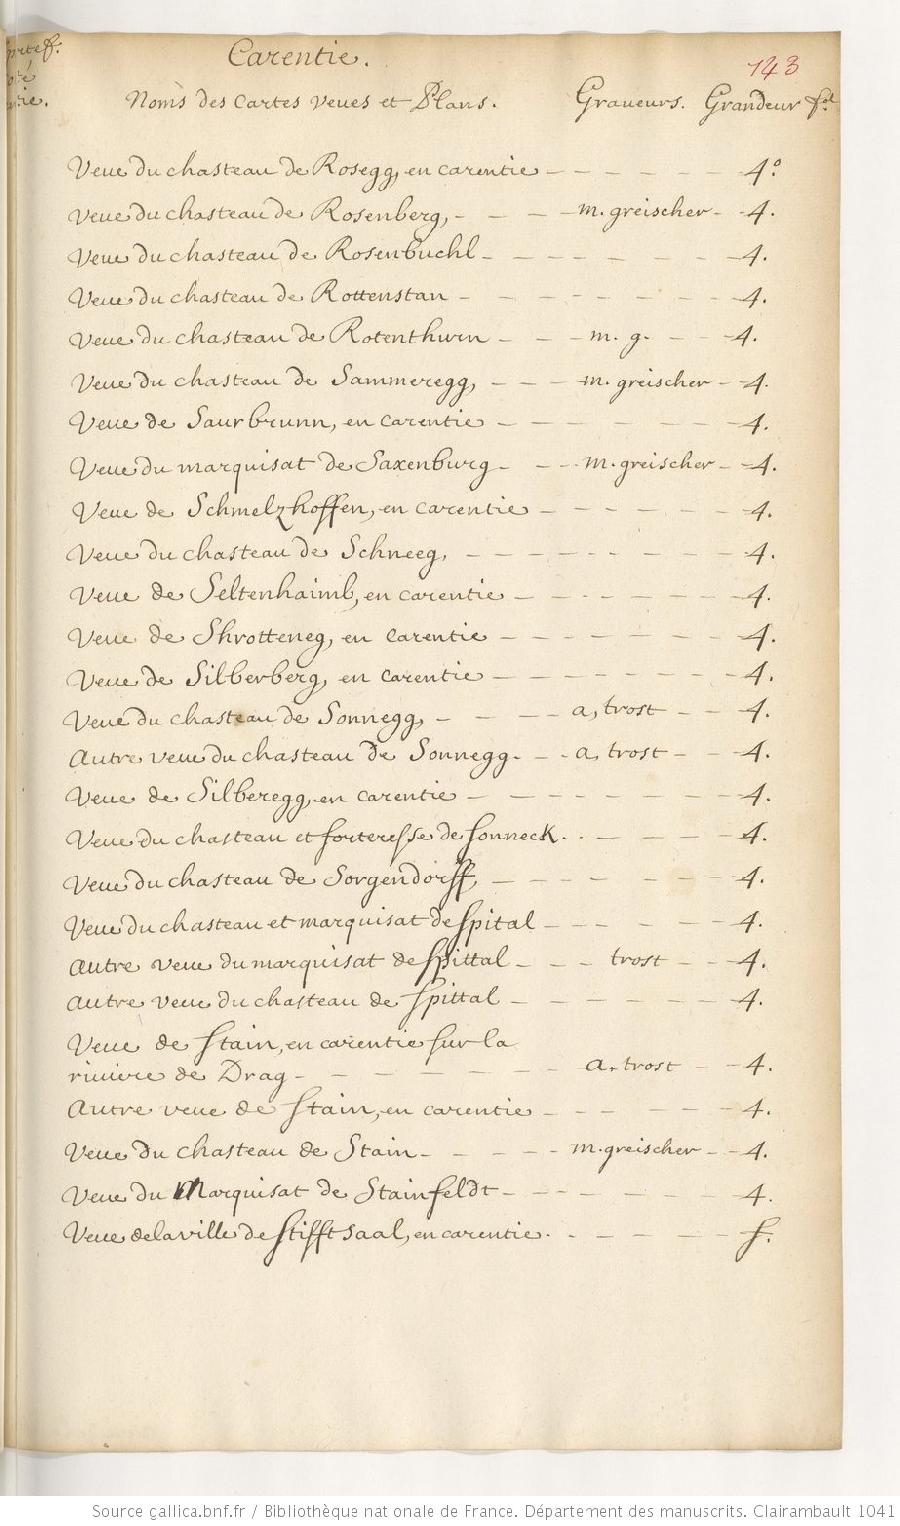 Carentie.
143
Noms des Cartes veues et Plans. Graueurs. Grandeur
Veue du chasteau de Rosegg, en carentie - - - - - - 4.º
Veue du chasteau de Rosenberg, - - - - m. greischer - - 4.
Veue du chasteau de Rosenbuchl - - - - - - - - 4.
Veue du chasteau de Rottenstan - - - - - - - - 4.
Veue du chasteau de Rotenthurn - - - m. g. - - - 4.
Veue du chasteau de Sammeregg, - - - m. greischer - 4.
Veue de Saurbrunn, en carentie - - - - - - - 4.
Veue du marquisat de Saxenburg - - - m. greischer - - 4.
Veue de Schmelzhoffen, en carentie - - - - - - 4.
Veue du chasteau de Schneeg, - - - - - - - - 4.
Veue de Seltenhaimb, en carentie - - - - - - - 4.
Veue de Shrotteneg, en carentie - - - - - - - 4.
Veue de Silberberg, en carentie - - - - - - - - 4.
Veue du chasteau de Sonnegg, - - - - a, trost - - - 4.
Autre veue du chasteau De Sonnegg - - - a, trost - - - 4.
Veue de Silberegg, en carentie - - - - - - - - 4.
Veue du chasteau et forteresse de Sonneck. - - - - - 4.
Veue du chasteau de Sorgendorff, - - - - - - - 4.
Veue du chasteau et marquisat de Spital - - - - - - 4.
Autre veue du marquisat de Spittal - - - trost - - - 4.
Autre veue du chasteau de Spittal - - - - - - - 4.
Veue de Stain, en carentie sur la
riuiere de Drag - - - - - - - a, trost - - 4.
Autre veue de Stain, en carentie - - - - - - 4.
Veue Du Chasteau de Stain - - - - - m. greischer - - 4.
Veue du Marquisat de Stainfeldt - - - - - - - 4.
Veue de la ville de Stifft Saal, en carentie. - - - - - f.
Source gallica.bnf.fr / Bibliothèque nationale de France. Département des manuscrits. Clairambault 1041